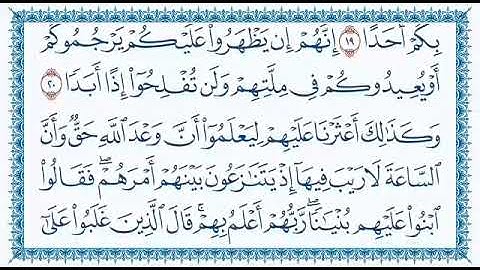 بِكُمْ أَحَدًا ١٩ إِنَّهُمْ إِن يَظْهَرُوا۟ عَلَيْكُمْ يَرْجُمُوكُمْ
أَوْ يُعِيدُوكُمْ فِى مِلَّتِهِمْ وَلَن تُفْلِحُوٓا۟ إِذًا أَبَدًا ٢٠
وَكَذَٰلِكَ أَعْثَرْنَا عَلَيْهِمْ لِيَعْلَمُوٓا۟ أَنَّ وَعْدَ ٱللَّهِ حَقٌّ وَأَنَّ
ٱلسَّاعَةَ لَا رَيْبَ فِيهَآ إِذْ يَتَنَٰزَعُونَ بَيْنَهُمْ أَمْرَهُمْ ۖ فَقَالُوا۟
ٱبْنُوا۟ عَلَيْهِم بُنْيَٰنًا ۖ رَّبُّهُمْ أَعْلَمُ بِهِمْ ۚ قَالَ ٱلَّذِينَ غَلَبُوا۟ عَلَىٰٓ